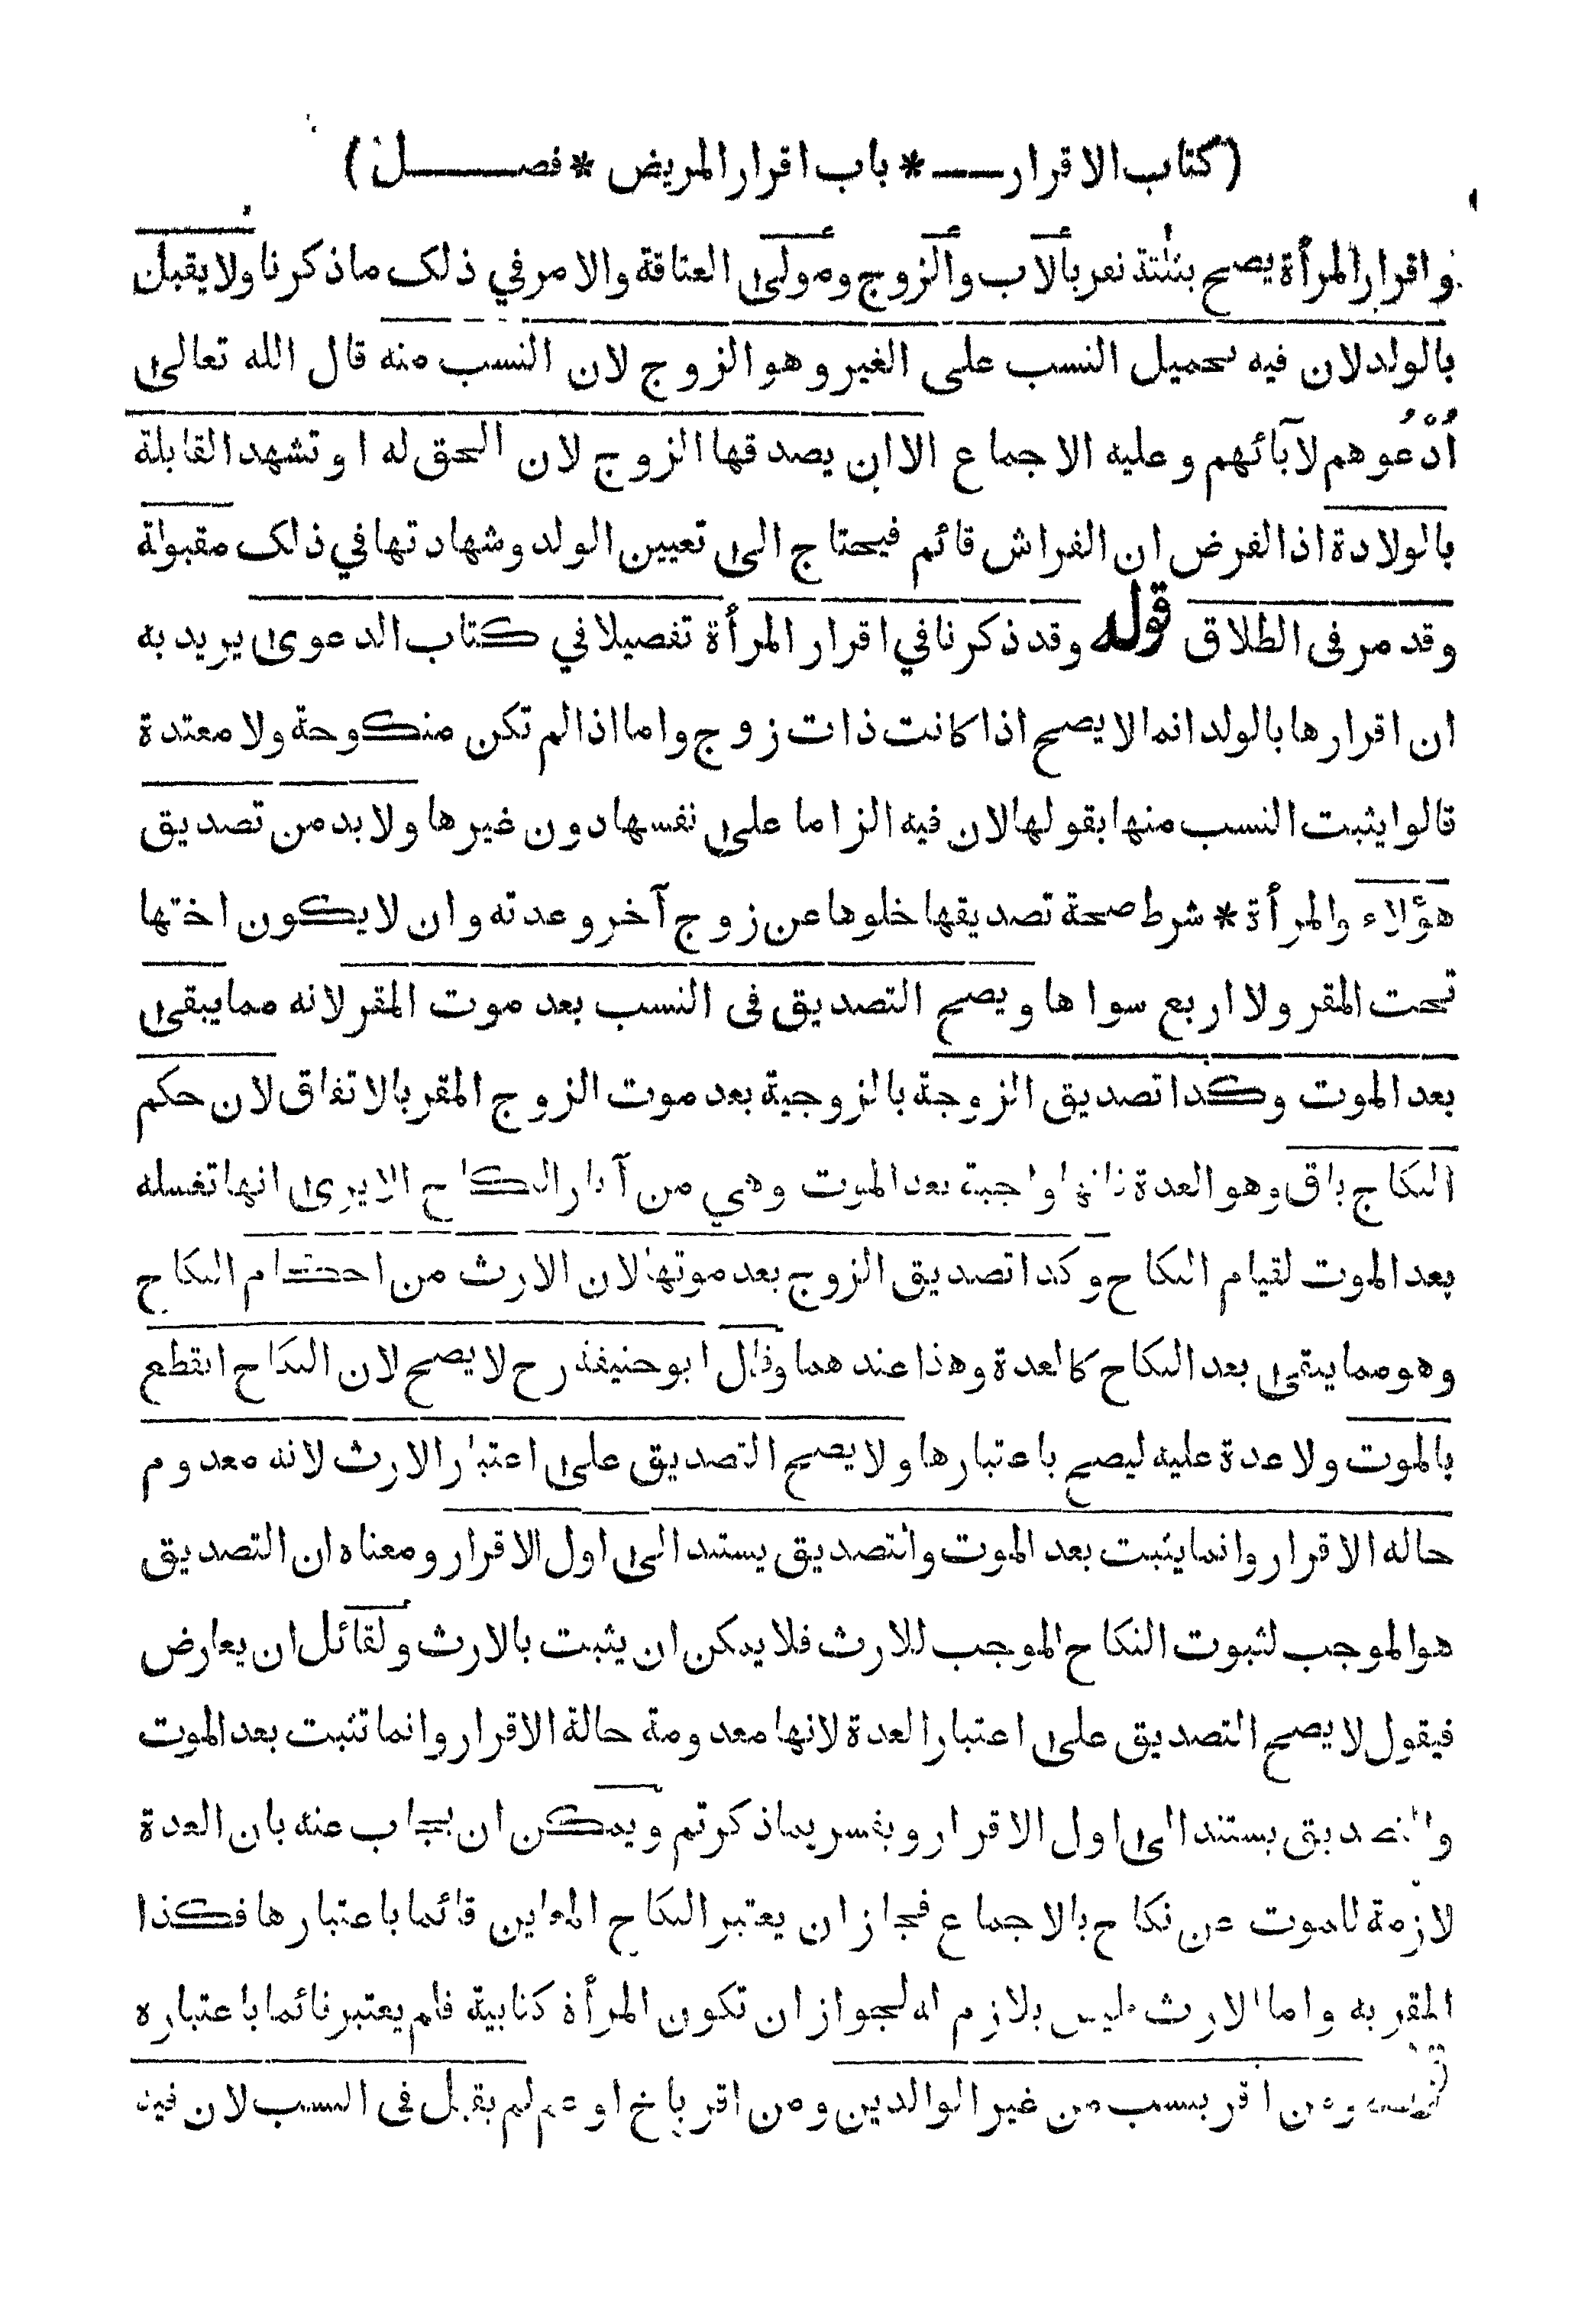 (كتاب الاقرار — * باب اقرار المريض * فصل)
واقرار المرأة يصح بثلثة نفر بالاب والزوج ومولى العتاقة والامر في ذلك ماذكرنا ولا يقبل
بالولد لان فيه تحميل النسب على الغير وهو الزوج لان النسب منه قال الله تعالى
اُدْعُوهم لآبائهم وعليه الاجماع الا ان يصدقها الزوج لان الحق له او تشهد القابلة
بالولادة اذ الفرض ان الفراش قائم فيحتاج الى تعيين الولد وشهادتها في ذلك مقبولة
وقد مر في الطلاق قوله وقد ذكرنا في اقرار المرأة تفصيلا في كتاب الدعوى يريد به
ان اقرارها بالولد انما لا يصح اذا كانت ذات زوج واما اذا لم تكن منكوحة ولا معتدة
قالوا يثبت النسب منها بقولها لان فيه الزاما على نفسها دون غيرها ولا بد من تصديق
هؤلاء والمرأة * شرط صحة تصديقها خلوها عن زوج آخر وعدته وان لا يكون اختها
تحت المقر ولا اربع سواها ويصح التصديق في النسب بعد موت المقر لانه مما يبقى
بعد الموت وكذا تصديق الزوجة بالزوجية بعد موت الزوج المقر بالاتفاق لان حكم
النكاح باق وهو العدة فانها واجبة بعد الموت وهي من آثار النكاح الا يرى انها تغسله
بعد الموت لقيام النكاح وكذا تصديق الزوج بعد موتها لان الارث من احكام النكاح
وهو مما يبقى بعد النكاح كالعدة وهذا عندهما وقال ابو حنيفة رح لا يصح لان النكاح انقطع
بالموت ولا عدة عليه ليصح باعتبارها ولا يصح التصديق على اعتبار الارث لانه معدوم
حالة الاقرار وانما يثبت بعد الموت والتصديق يستند الى اول الاقرار ومعناه ان التصديق
هو الموجب لثبوت النكاح الموجب للارث فلا يمكن ان يثبت بالارث ولقائل ان يعارض
فيقول لا يصح التصديق على اعتبار العدة لانها معدومة حالة الاقرار وانما تثبت بعد الموت
والتصديق يستند الى اول الاقرار ويفسر بماذكرتم ويمكن ان يجاب عنه بان العدة
لازمة للموت عن نكاح بالاجماع فجاز ان يعتبر النكاح المعاين قائما باعتبارها فكذا
المقر به واما الارث فليس بلازم له لجواز ان تكون المرأة كتابية فلم يعتبر قائما باعتباره
ومن اقر بنسب من غير الوالدين ومن اقر باخ او عم لم يقبل في النسب لان فيه